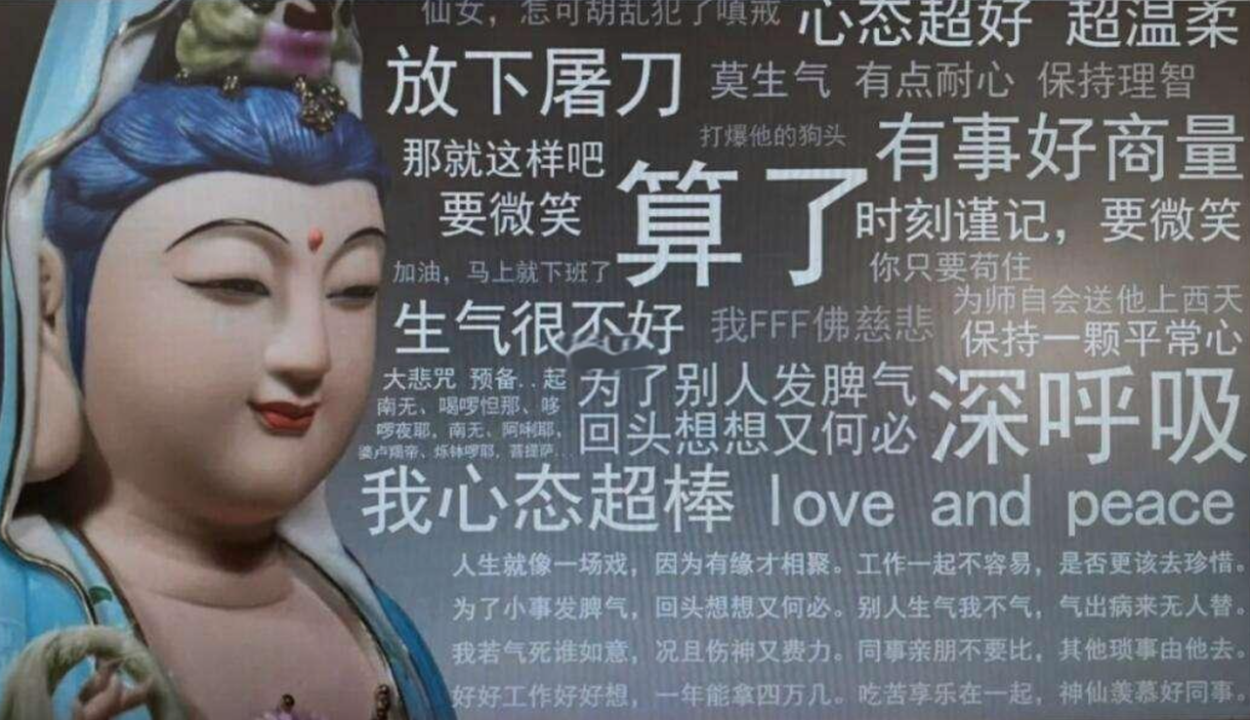 仙女，怎可胡乱犯了嗔戒
心态超好 超温柔
放下屠刀
莫生气 有点耐心 保持理智
打爆他的狗头
那就这样吧
有事好商量
要微笑
算了
时刻谨记，要微笑
加油，马上就下班了
你只要苟住
为师自会送他上西天
生气很不好
我FFF佛慈悲
保持一颗平常心
大悲咒 预备..起
南无、喝啰怛那、哆
啰夜耶，南无、阿唎耶，
婆卢羯帝、烁钵啰耶，菩提萨...
为了别人发脾气
回头想想又何必
深呼吸
我心态超棒 love and peace
人生就像一场戏，因为有缘才相聚。工作一起不容易，是否更该去珍惜。
为了小事发脾气，回头想想又何必。别人生气我不气，气出病来无人替。
我若气死谁如意，况且伤神又费力。同事亲朋不要比，其他琐事由他去。
好好工作好好想，一年能拿四万几。吃苦享乐在一起，神仙羡慕好同事。